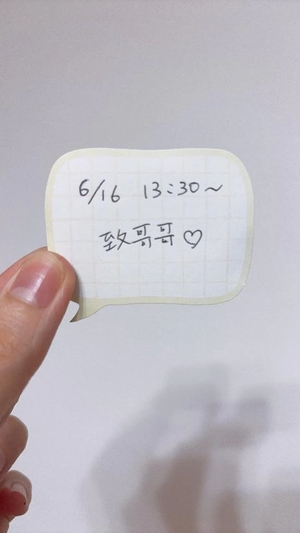 6/16 13:30~
致哥哥♡